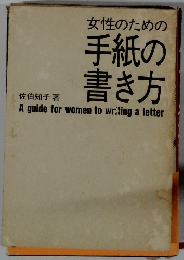 女性のための
手紙の
書き方
佐伯知子 著
A guide for women to writing a letter